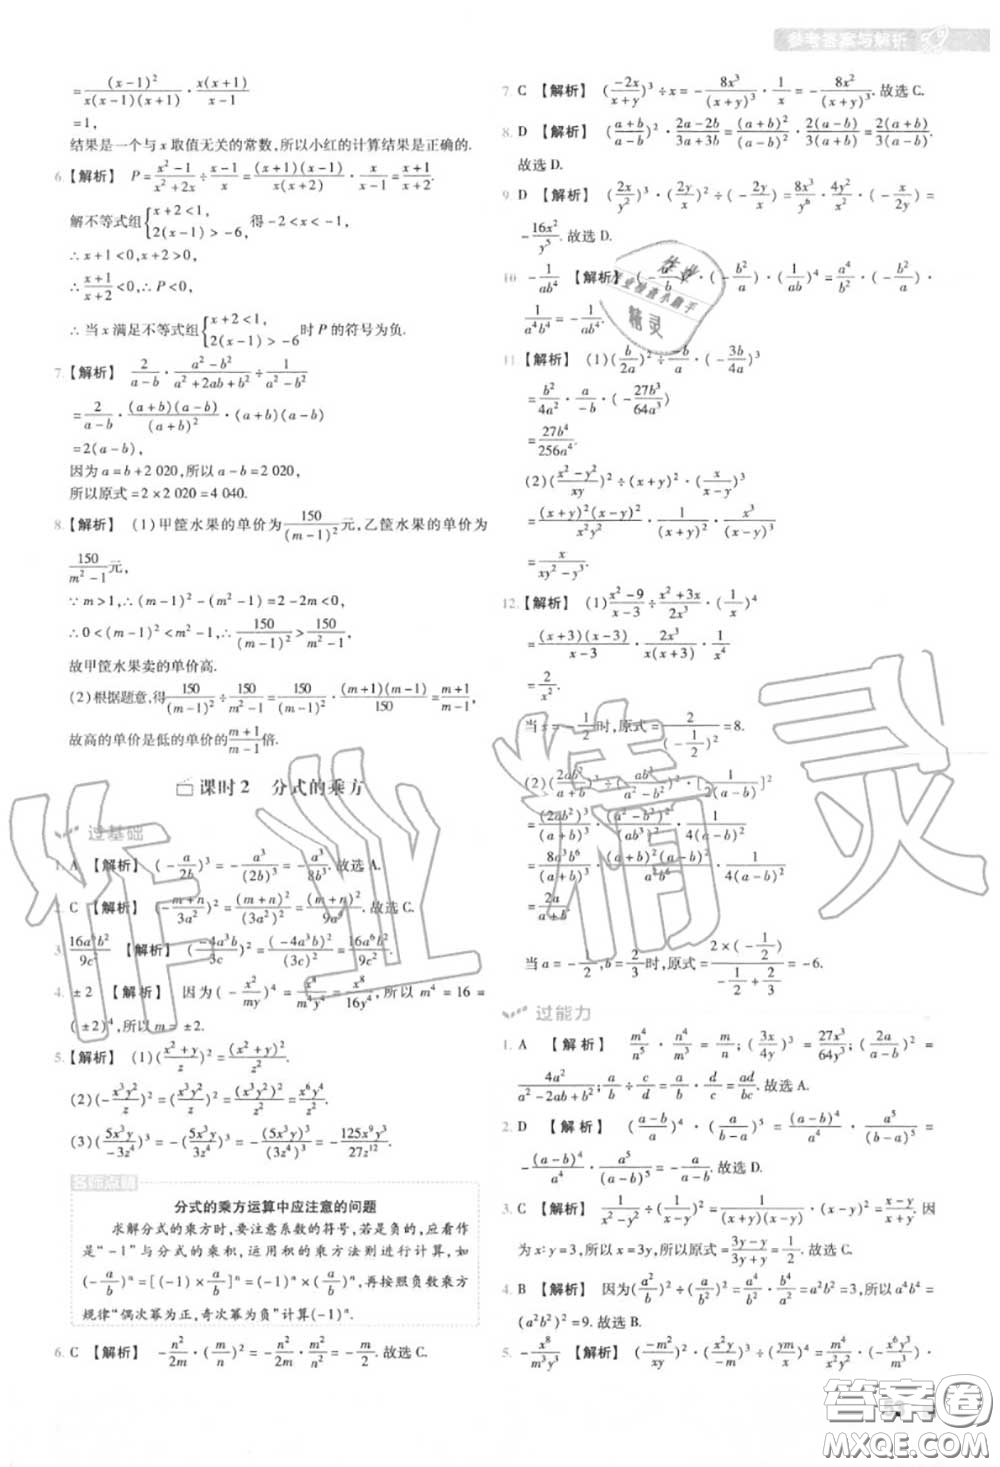 参考答案与解析
=\frac{(x-1)^2}{x(x-1)(x+1)}·\frac{x(x+1)}{x-1}
=1,
结果是一个与x取值无关的常数,所以小红的计算结果是正确的.
6.【解析】 P=\frac{x^2-1}{x^2+2x}÷\frac{x-1}{x}=\frac{(x+1)(x-1)}{x(x+2)}·\frac{x}{x-1}=\frac{x+1}{x+2}.
解不等式组{x+2<1, 2(x-1)>-6, 得-2<x<-1,
∴x+1<0,x+2>0,
∴\frac{x+1}{x+2}<0,∴P<0,
∴当x满足不等式组{x+2<1, 2(x-1)>-6 时P的符号为负.
7.【解析】 \frac{2}{a-b}·\frac{a^2-b^2}{a^2+2ab+b^2}÷\frac{1}{a^2-b^2}
=\frac{2}{a-b}·\frac{(a+b)(a-b)}{(a+b)^2}·(a+b)(a-b)
=2(a-b),
因为a=b+2 020,所以a-b=2 020,
所以原式=2×2 020=4 040.
8.【解析】 (1)甲筐水果的单价为\frac{150}{(m-1)^2}元,乙筐水果的单价为
\frac{150}{m^2-1}元,
∵m>1,∴(m-1)^2-(m^2-1)=2-2m<0,
∴0<(m-1)^2<m^2-1,∴\frac{150}{(m-1)^2}>\frac{150}{m^2-1},
故甲筐水果卖的单价高.
(2)根据题意,得\frac{150}{(m-1)^2}÷\frac{150}{m^2-1}=\frac{150}{(m-1)^2}·\frac{(m+1)(m-1)}{150}=\frac{m+1}{m-1},
故高的单价是低的单价的\frac{m+1}{m-1}倍.
课时2 分式的乘方
过基础
1. A 【解析】 (-\frac{a}{2b})^3=-\frac{a^3}{(2b)^3}=-\frac{a^3}{8b^3}.故选A.
2. C 【解析】 (-\frac{m+n}{3a^2})^2=\frac{(m+n)^2}{(3a^2)^2}=\frac{(m+n)^2}{9a^4}.故选C.
3. \frac{16a^6b^2}{9c^2} 【解析】 (\frac{-4a^3b}{3c})^2=\frac{(-4a^3b)^2}{(3c)^2}=\frac{16a^6b^2}{9c^2}.
4. ±2 【解析】 因为(-\frac{x^2}{my})^4=\frac{x^8}{m^4y^4}=\frac{x^8}{16y^4},所以m^4=16=
(±2)^4,所以m=±2.
5.【解析】 (1)(\frac{x^2+y}{z})^2=\frac{(x^2+y)^2}{z^2}.
(2)(-\frac{x^3y^2}{z})^2=(\frac{x^3y^2}{z})^2=\frac{(x^3y^2)^2}{z^2}=\frac{x^6y^4}{z^2}.
(3)(\frac{5x^3y}{-3z^4})^3=-(\frac{5x^3y}{3z^4})^3=-\frac{(5x^3y)^3}{(3z^4)^3}=-\frac{125x^9y^3}{27z^{12}}.
名师点睛
分式的乘方运算中应注意的问题
求解分式的乘方时,要注意系数的符号,若是负的,应看作
是“-1”与分式的乘积,运用积的乘方法则进行计算,如
(-\frac{a}{b})^n=[(-1)×\frac{a}{b}]^n=(-1)^n×(\frac{a}{b})^n,再按照负数乘方
规律“偶次幂为正,奇次幂为负”计算(-1)^n.
6. C 【解析】 -\frac{n^2}{2m}·(\frac{m}{n})^2=-\frac{n^2}{2m}·\frac{m^2}{n^2}=-\frac{m}{2}.故选C.
7. C 【解析】 (\frac{-2x}{x+y})^3÷x=-\frac{8x^3}{(x+y)^3}·\frac{1}{x}=-\frac{8x^2}{(x+y)^3}.故选C.
8. D 【解析】 (\frac{a+b}{a-b})^2·\frac{2a-2b}{3a+3b}=\frac{(a+b)^2}{(a-b)^2}·\frac{2(a-b)}{3(a+b)}=\frac{2(a+b)}{3(a-b)}.
故选D.
9. D 【解析】 (\frac{2x}{y^2})^3·(\frac{2y}{x})^2÷(-\frac{2y}{x})=\frac{8x^3}{y^6}·\frac{4y^2}{x^2}·(-\frac{x}{2y})=
-\frac{16x^2}{y^5}.故选D.
10. -\frac{1}{ab^4} 【解析】
\frac{1}{a^4b^4}=-\frac{1}{ab^4}.
11.【解析】 (1)(\frac{b}{2a})^2÷\frac{a-b}{a}·(-\frac{3b}{4a})^3
=\frac{b^2}{4a^2}·\frac{a}{a-b}·(-\frac{27b^3}{64a^3})
(2)(\frac{x^2-y^2}{xy})^2÷(x+y)^2·(\frac{x}{x-y})^3
=\frac{(x+y)^2(x-y)^2}{x^2y^2}·\frac{1}{(x+y)^2}·\frac{x^3}{(x-y)^3}
=\frac{x}{xy^2-y^3}.
12.【解析】 (1)\frac{x^2-9}{x-3}÷\frac{x^2+3x}{2x^3}·(\frac{1}{x})^4
=\frac{(x+3)(x-3)}{x-3}·\frac{2x^3}{x(x+3)}·\frac{1}{x^4}
=\frac{2}{x^2}.
当x=-\frac{1}{2}时,原式=\frac{2}{(-\frac{1}{2})^2}=8.
=\frac{2a}{a+b}.
当a=-\frac{1}{2},b=\frac{2}{3}时,原式=\frac{2×(-\frac{1}{2})}{-\frac{1}{2}+\frac{2}{3}}=-6.
过能力
1. A 【解析】 \frac{m^4}{n^5}·\frac{n^4}{m^3}=\frac{m}{n};(\frac{3x}{4y})^3=\frac{27x^3}{64y^3};(\frac{2a}{a-b})^2=
\frac{4a^2}{a^2-2ab+b^2};\frac{a}{b}÷\frac{c}{d}=\frac{a}{b}·\frac{d}{c}=\frac{ad}{bc}.故选A.
2. D 【解析】 (\frac{a-b}{a})^4·(\frac{a}{b-a})^5=(\frac{a-b}{a})^4·\frac{a^5}{(b-a)^5}=
-\frac{(a-b)^4}{a^4}·\frac{a^5}{(a-b)^5}=-\frac{a}{a-b}.故选D.
3. C 【解析】 \frac{1}{x^2-y^2}÷(\frac{1}{x-y})^2=\frac{1}{(x+y)(x-y)}·(x-y)^2=\frac{x-y}{x+y}.因
为x:y=3,所以x=3y,所以原式=\frac{3y-y}{3y+y}=\frac{1}{2}.故选C.
4. B 【解析】 因为(\frac{a^2}{b})^2÷(\frac{a}{b^2})^2=\frac{a^4}{b^2}·\frac{b^4}{a^2}=a^2b^2=3,所以a^4b^4=
(a^2b^2)^2=9.故选B.
5. -\frac{x^8}{m^3y^3} 【解析】 (\frac{-m^2}{xy})^2·(-\frac{x^2y}{m^2})^3÷(\frac{ym}{x})^4=\frac{m^4}{x^2y^2}·(-\frac{x^6y^3}{m^6})·
作业精灵
作业
作业检查小助手
精灵
答案圈
MXQE.COM